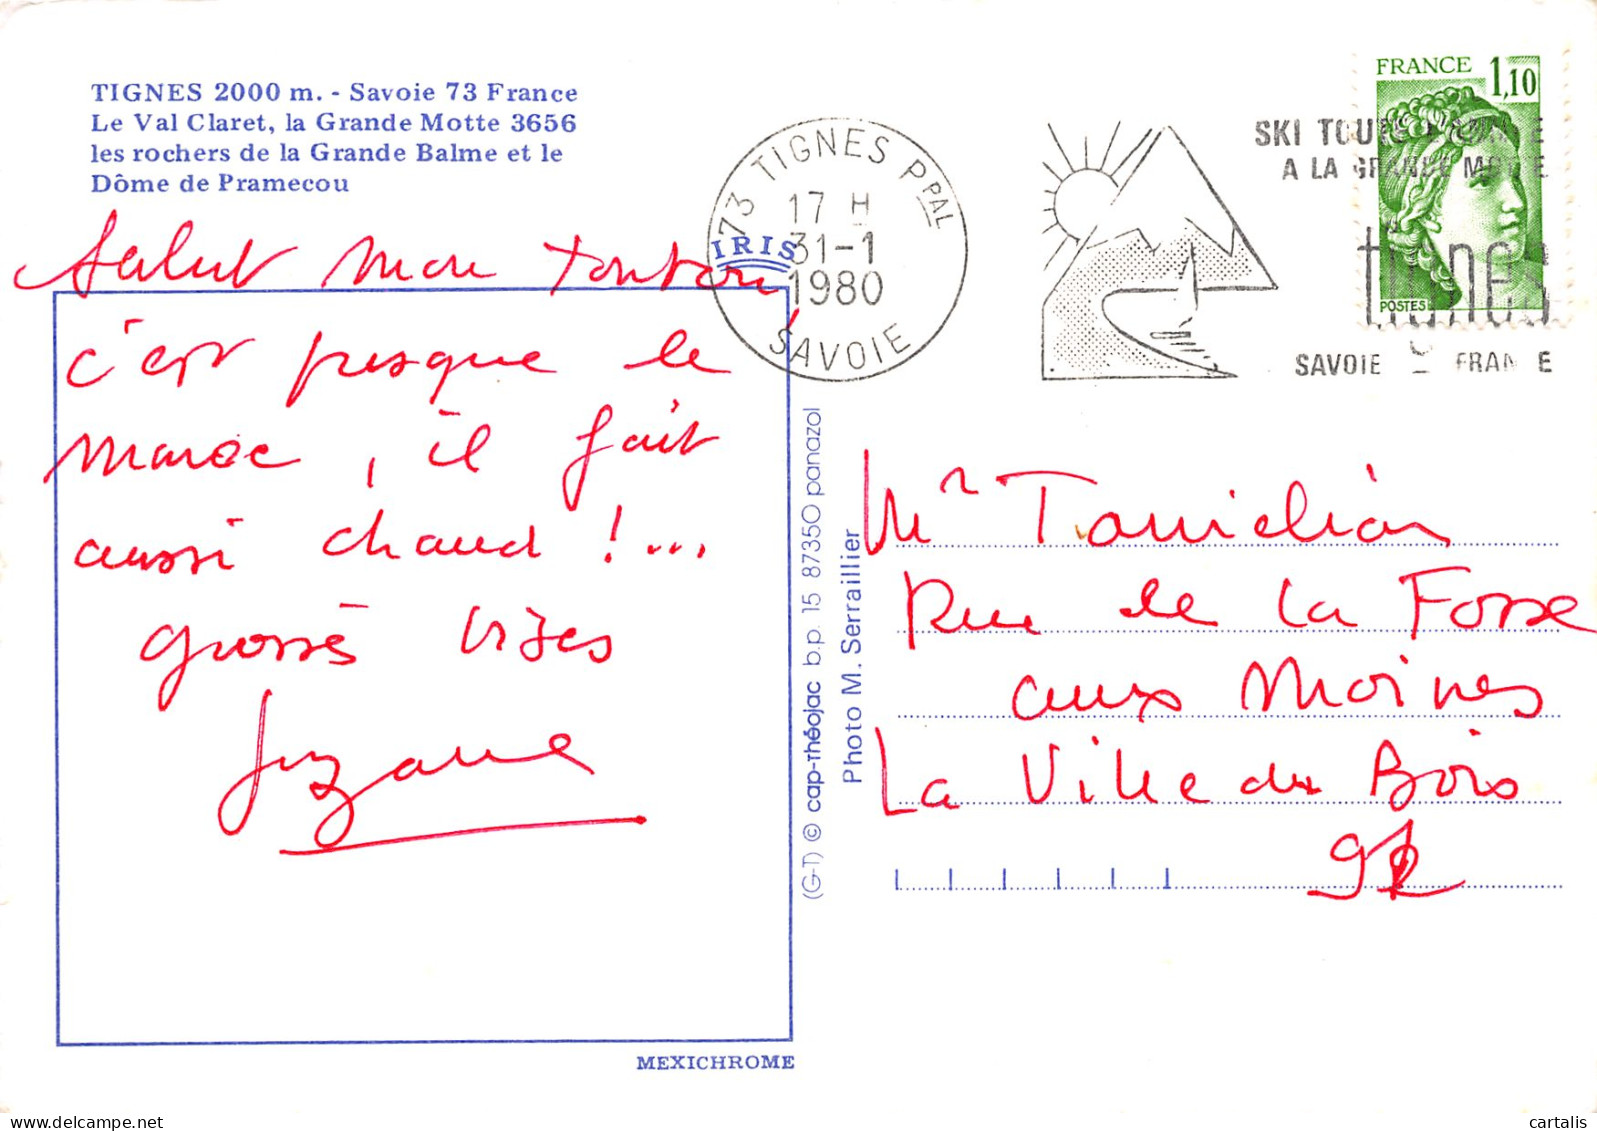 TIGNES 2000 m. - Savoie 73 France
Le Val Claret, la Grande Motte 3656
les rochers de la Grande Balme et le
Dôme de Pramecou
IRIS
Salut mon tonton
c'est presque le
maroc, il fait
aussi chaud !...
grosses bises
Suzanne
MEXICHROME
(G-T) © cap-théojac b.p. 15 87350 panazol
Photo M. Serraillier
73 TIGNES PPAL
17 H
31-1
1980
SAVOIE
SKI TOUTE L'ANNÉE
A LA GRANDE MOTTE
tignes
SAVOIE FRANCE
FRANCE 1,10
POSTES
Mr
Rue de la Fosse
aux Moines
La Ville du Bois
92
cartalis